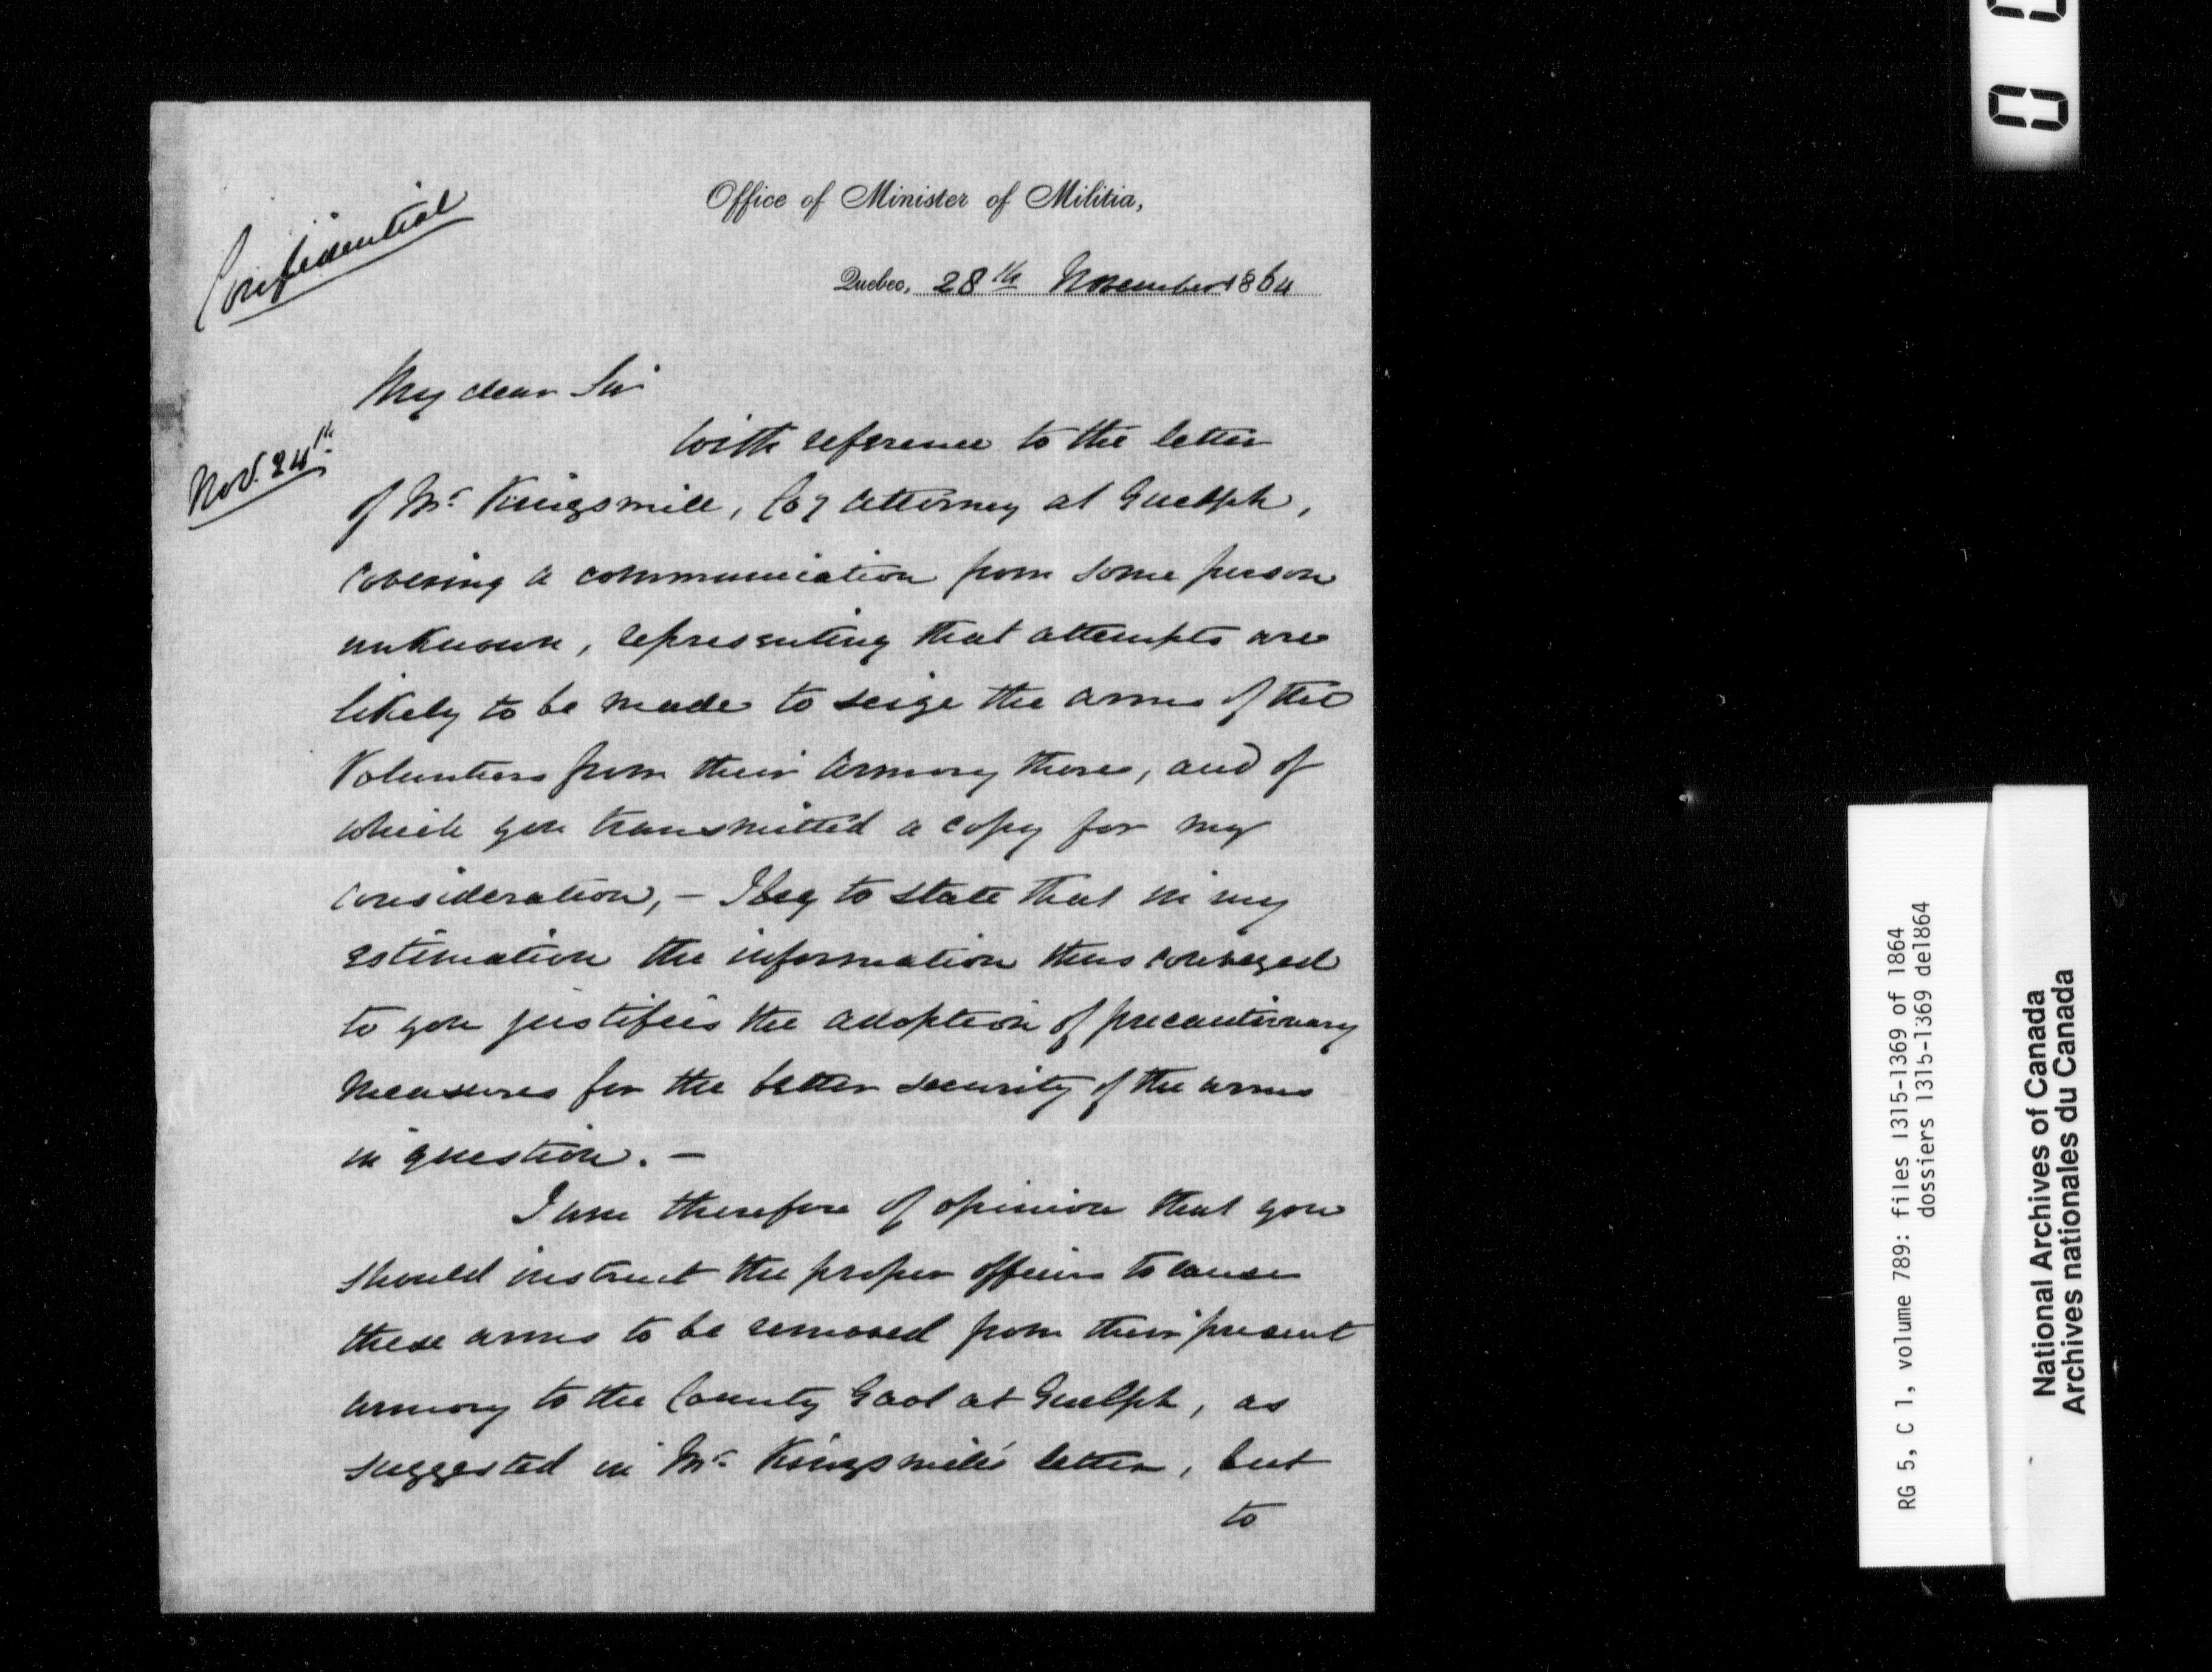 Confidential
Office of Minister of Militia,
Quebec, 28th November 1864
My dear Sir
Nov. 24th
With reference to the letter
of Mr Kingsmill, Coy Attorney at Guelph,
covering a communication from some person
unknown, representing that attempts are
likely to be made to seize the arms of the
Volunteers from their Armory there, and of
which you transmitted a copy for my
consideration, – I beg to state that in my
estimation the information thus conveyed
to you justifies the adoption of precautionary
measures for the better security of the arms
in question. –
I am therefore of opinion that you
should instruct the proper officers to cause
these arms to be removed from their present
armory to the County Gaol at Guelph, as
suggested in Mr Kingsmill's letter, but
to
RG 5, C 1, volume 789: files 1315-1369 of 1864
dossiers 1315-1369 de1864
National Archives of Canada
Archives nationales du Canada